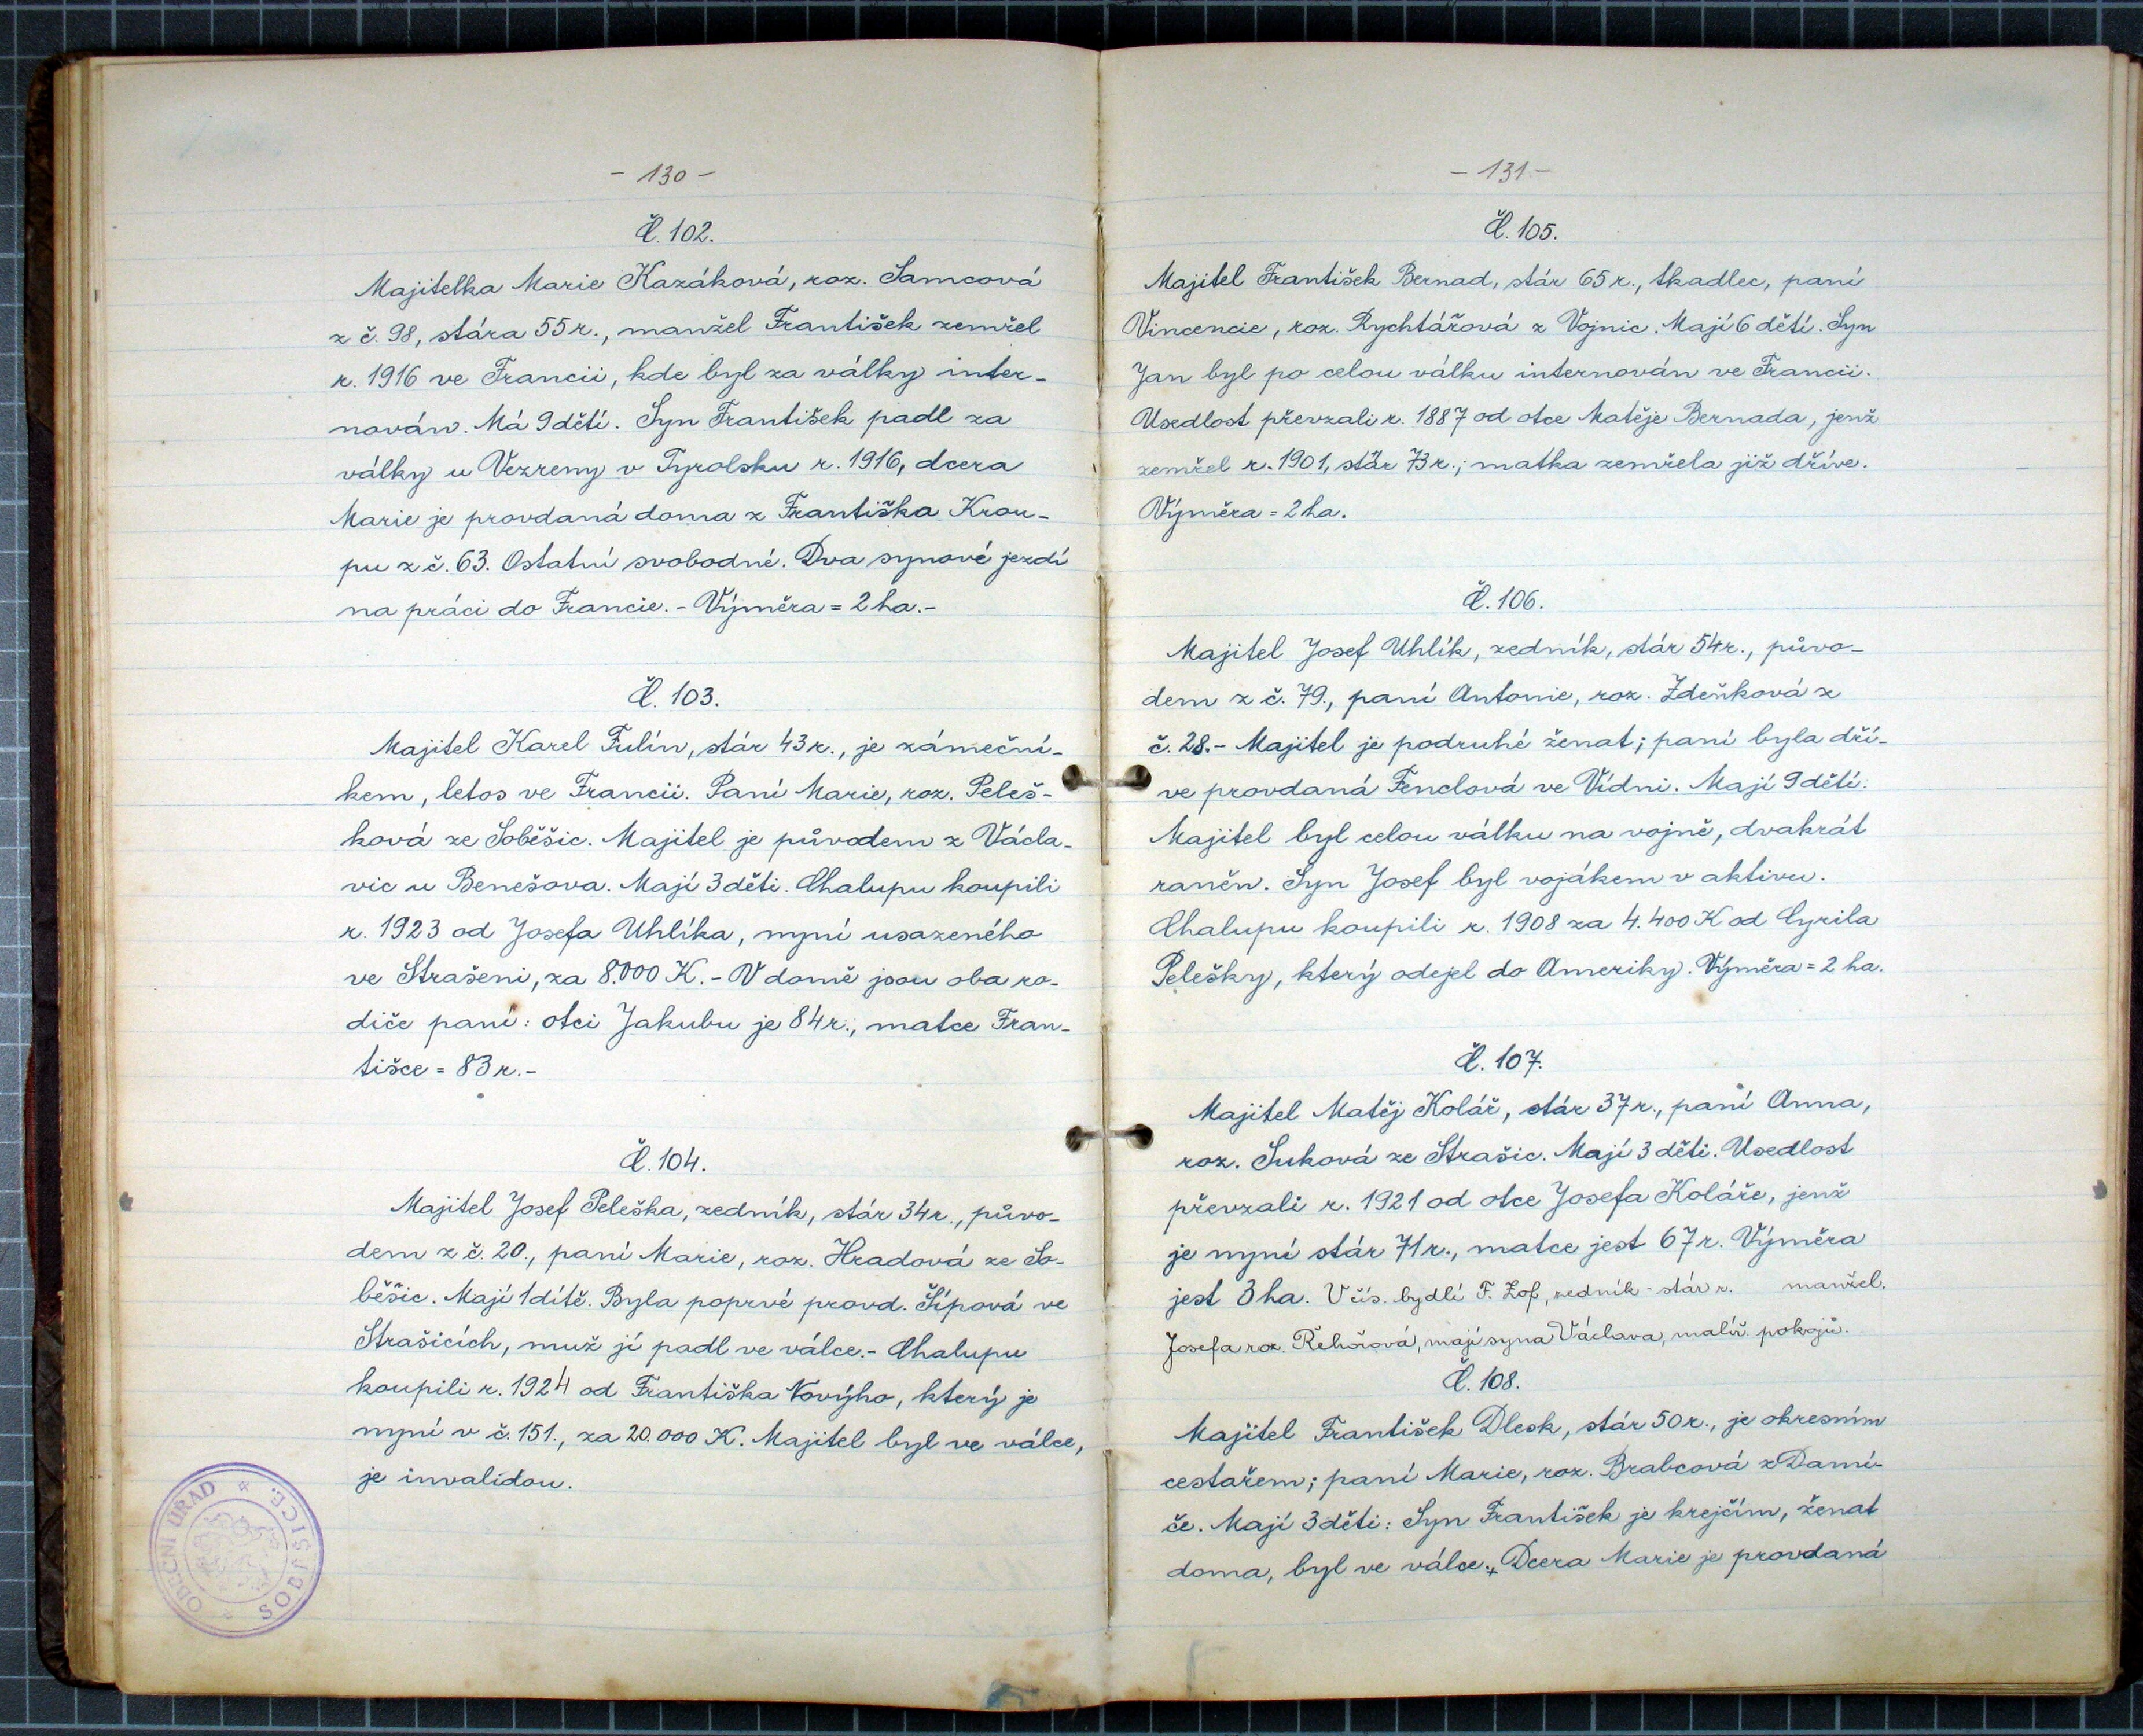 - 130 -
Č. 102.
Majitelka Marie Kazáková, roz. Samcová
z č. 98, stára 55 r., manžel František zemřel
r. 1916 ve Francii, kde byl za války inter-
nován. Má 9 dětí. Syn František padl za
války u Vezreny v Tyrolsku r. 1916, dcera
Marie je provdaná doma z Františka Krou-
pu z č. 63. Ostatní svobodné. Dva synové jezdí
na práci do Francie. - Výměra = 2 ha. -
Č. 103.
Majitel Karel Fulín, stár 43 r., je zámeční-
kem, letos ve Francii. Paní Marie, roz. Peleš-
ková ze Soběšic. Majitel je původem z Václa-
vic u Benešova. Mají 3 děti. Chalupu koupili
r. 1923 od Josefa Uhlíka, nyní usazeného
ve Strašeni, za 8.000 K. - V domě jsou oba ro-
diče paní: otci Jakubu je 84 r., matce Fran-
tišce = 83 r. -
Č. 104.
Majitel Josef Peleška, zedník, stár 34 r., půvo-
dem z č. 20., paní Marie, roz. Hradová ze So-
běšic. Mají 1 dítě. Byla poprvé provd. Šípová ve
Strašicích, muž jí padl ve válce. - Chalupu
koupili r. 1924 od Františka Novýho, který je
nyní v č. 151., za 20.000 K. Majitel byl ve válce,
je invalidou.
OBECNÍ ÚŘAD SOBĚŠICE.
- 131 -
Č. 105.
Majitel František Bernad, stár 65 r., tkadlec, paní
Vincencie, roz. Rychtářová z Vojnic. Mají 6 dětí. Syn
Jan byl po celou válku internován ve Francii.
Usedlost převzali r. 1887 od otce Matěje Bernada, jenž
zemřel r. 1901, stár 73 r.; matka zemřela již dříve.
Výměra = 2 ha.
Č. 106.
Majitel Josef Uhlík, zedník, stár 54 r., půvo-
dem z č. 79., paní Antonie, roz. Zdeňková z
č. 28. - Majitel je podruhé ženat; paní byla dří-
ve provdaná Fenclová ve Vídni. Mají 9 dětí.
Majitel byl celou válku na vojně, dvakrát
raněn. Syn Josef byl vojákem v aktivu.
Chalupu koupili r. 1908 za 4.400 K od Cyrila
Pelešky, který odejel do Ameriky. Výměra = 2 ha.
Č. 107.
Majitel Matěj Kolář, stár 37 r., paní Anna,
roz. Suková ze Strašic. Mají 3 děti. Usedlost
převzali r. 1921 od otce Josefa Koláře, jenž
je nyní stár 71 r., matce jest 67 r. Výměra
jest 3 ha. V čís. bydlí F. Zof, zedník - stár r. manžel.
Josefa roz. Řehořová, mají syna Václava, malíř pokojů.
Č. 108.
Majitel František Dlesk, stár 50 r., je okresním
cestařem; paní Marie, roz. Brabcová z Damí-
če. Mají 3 děti: Syn František je krejčím, ženat
doma, byl ve válce. + Dcera Marie je provdaná